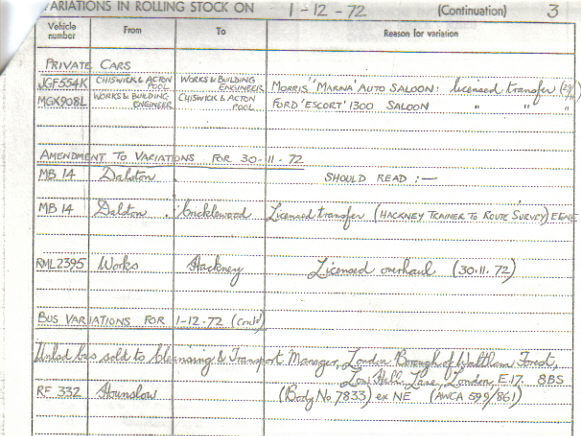 VARIATIONS IN ROLLING STOCK ON 1-12-72 (Continuation) 3
Vehicle number From To Reason for variation
PRIVATE CARS
JGF554K CHISWICK & ACTON POOL WORKS & BUILDING ENGINEER MORRIS "MARINA" AUTO SALOON: licensed transfer
MGX908L WORKS & BUILDING ENGINEER CHISWICK & ACTON POOL FORD 'ESCORT' 1300 SALOON " " "
AMENDMENT TO VARIATIONS FOR 30-11-72
MB 14 Dalston . SHOULD READ :—
MB 14 Dalston . Cricklewood Licensed transfer (HACKNEY TRAINER TO ROUTE SURVEY)
RML2395 Works Hackney Licensed overhaul (30.11.72)
BUS VARIATIONS FOR 1-12-72 (Contd)
Unlicd bus sold to Cleansing & Transport Manager, London Borough of Waltham Forest,
Low Hall Lane, London, E.17. 8BS
RF 332 Hounslow (Body No 7833) ex NE (AWCA 599/861)